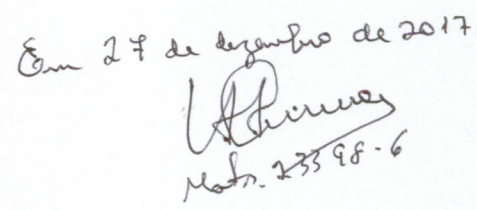 Em 27 de dezembro de 2017
Matr. 23398-6